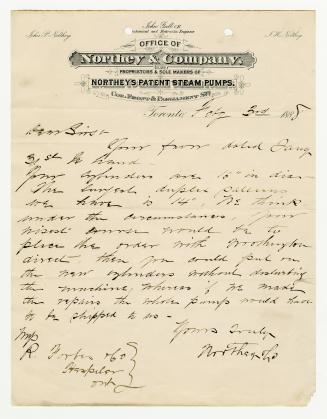 John Galt C.E.
Mechanical and Hydraulic Engineer
John P. Northey
J. H. Northey
OFFICE OF
Northey & Company,
PROPRIETORS & SOLE MAKERS OF
NORTHEY'S PATENT STEAM PUMPS.
COR. FRONT & PARLIAMENT STS
Toronto Feby 3rd 1888
Dear Sirs:-
Your favor dated Jany
31st to hand.
Your cylinders are 15" in dia-
The largest duplex patterns
we have is 14". We think
under the circumstances, your
wisest course would be to
place the order with Worthington
direct, then you could put on
the new cylinders without disturbing
the machine, whereas if we made
the repairs the whole pump would have
to be shipped to us -
Yours truly
Northey & Co
R. Forbes & Co
Hespeler
Ont